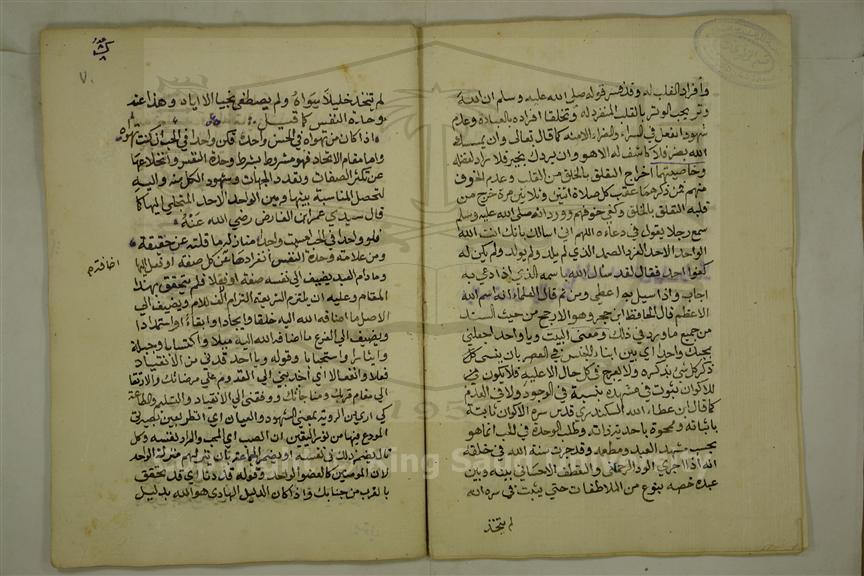 وأفراد القلب له وقد فسر قوله صلى الله عليه وسلم ان الله
وتر يحب الوتر بالقلب المنفرد له وتخلقا افراده بالعبادة وعدم
شهود الفعل في السراء والضراء الا منه كما قال تعالى وان يمسسك
الله بضر فلا كاشف له الا هو وان يردك بخير فلا راد لفضله
وخاصيتهما اخراج التعلق بالخلق من القلب وعدم الخوف
منهم فمن ذكرهما عقب كل صلاة اثنين وثلاثين مرة خرج من
قلبه التعلق بالخلق وكفي خوفهم وورد انه صلى الله عليه وسلم
سمع رجلا يقول في دعاءه اللهم اني اسالك بانك انت الله
الواحد الاحد الفرد الصمد الذي لم يلد ولم يولد ولم يكن له
كفوا احد فقال لقد سال الله باسمه الذي اذا دعي به
اجاب واذا سيل به اعطى ومن ثم قال العلماء انه اسم الله
الاعظم قال الحافظ ابن حجر وهو الارجح من حيث السند
من جميع ما ورد في ذلك ومعنى البيت ويا واحد اجعلني
بحبك واحدا اي بين ابناء الجنس في العصر بان ينسى كل
ذكر كل شي بذكره ولا يعرج في كل حال الا عليه فلا تكون في
للاكوان ثبوت في مشهده بنسبة في الوجود ولا في العدم
كما قال ابن عطاء الله السكندري قدس سره الاكوان ثابتة
باثباته وممحوة باحدية ذاته وطلب الوحدة في الحب انما هو
بحسب مشهد العبد ومطمعه وقد جرت سنة الله في خلقه
انه اذا اجري الود الرحماني والتعطف الاحساني بينه وبين
عبده خصه بنوع من الملاطفات حتى يثبت في سره انه
لم يتخذ
٧٠
لم يتخذ خليلا سواه ولم يصطفي نجيا الا اياه وهذا عند
وحدة النفس كما قيل
اذا كان من تهواه في الحسن واحدا فكن واحدا في الحب ان كنت تهواه
واما مقام الاتحاد فهو مشروط بشرط وحدة النفس وانخلاعها
عن تكثر الصفات وتعدد الجهات وشهود الكل منه واليه
لتحصل المناسبة بينها وبين الواحد الاحد المتجلي اليها كما
قال سيدي عمر ابن الفارض رضي الله عنه
فلو واحدا في الحب امسيت واحدا منازلك ما قلته عن حقيقة
ومن علامته وحدة النفس انفرادها عن كل صفة او قيل لها
وما دام العبد يضيف الى نفسه صفة او فعلا فلم يتحقق بهذا
المقام وعليه ان يلتزم الشريعة التزام ويضيف الى
الاصل ما اضافه الله اليه خلقا وايجادا وابقاء واستمدادا
ويضيف الى الفرع ما اضافه الله اليه ميلا واكتسابا وجبلة
وايثارا واستحبابا وقوله ويا احد قدني من الانقياد
فعلا وانفعالا اي اخذبني الى القدوم على مرضاتك والارتقا
الى مقام قربك ومناجاتك ووفقني الى الانقياد والتسليم والطاعة
كي ارى من الروية بمعنى الشهود والعيان اي انظر بعين بصيرتي
المودع فيها من نور اليقين ان الصب اي المحب والمراد نفسه وكل
لان المومنين كالعضو الواحد وقوله قد دنا اي قد تحقق
بالقرب من جنابك واذا كان الدليل الهادي هو الله بدليل